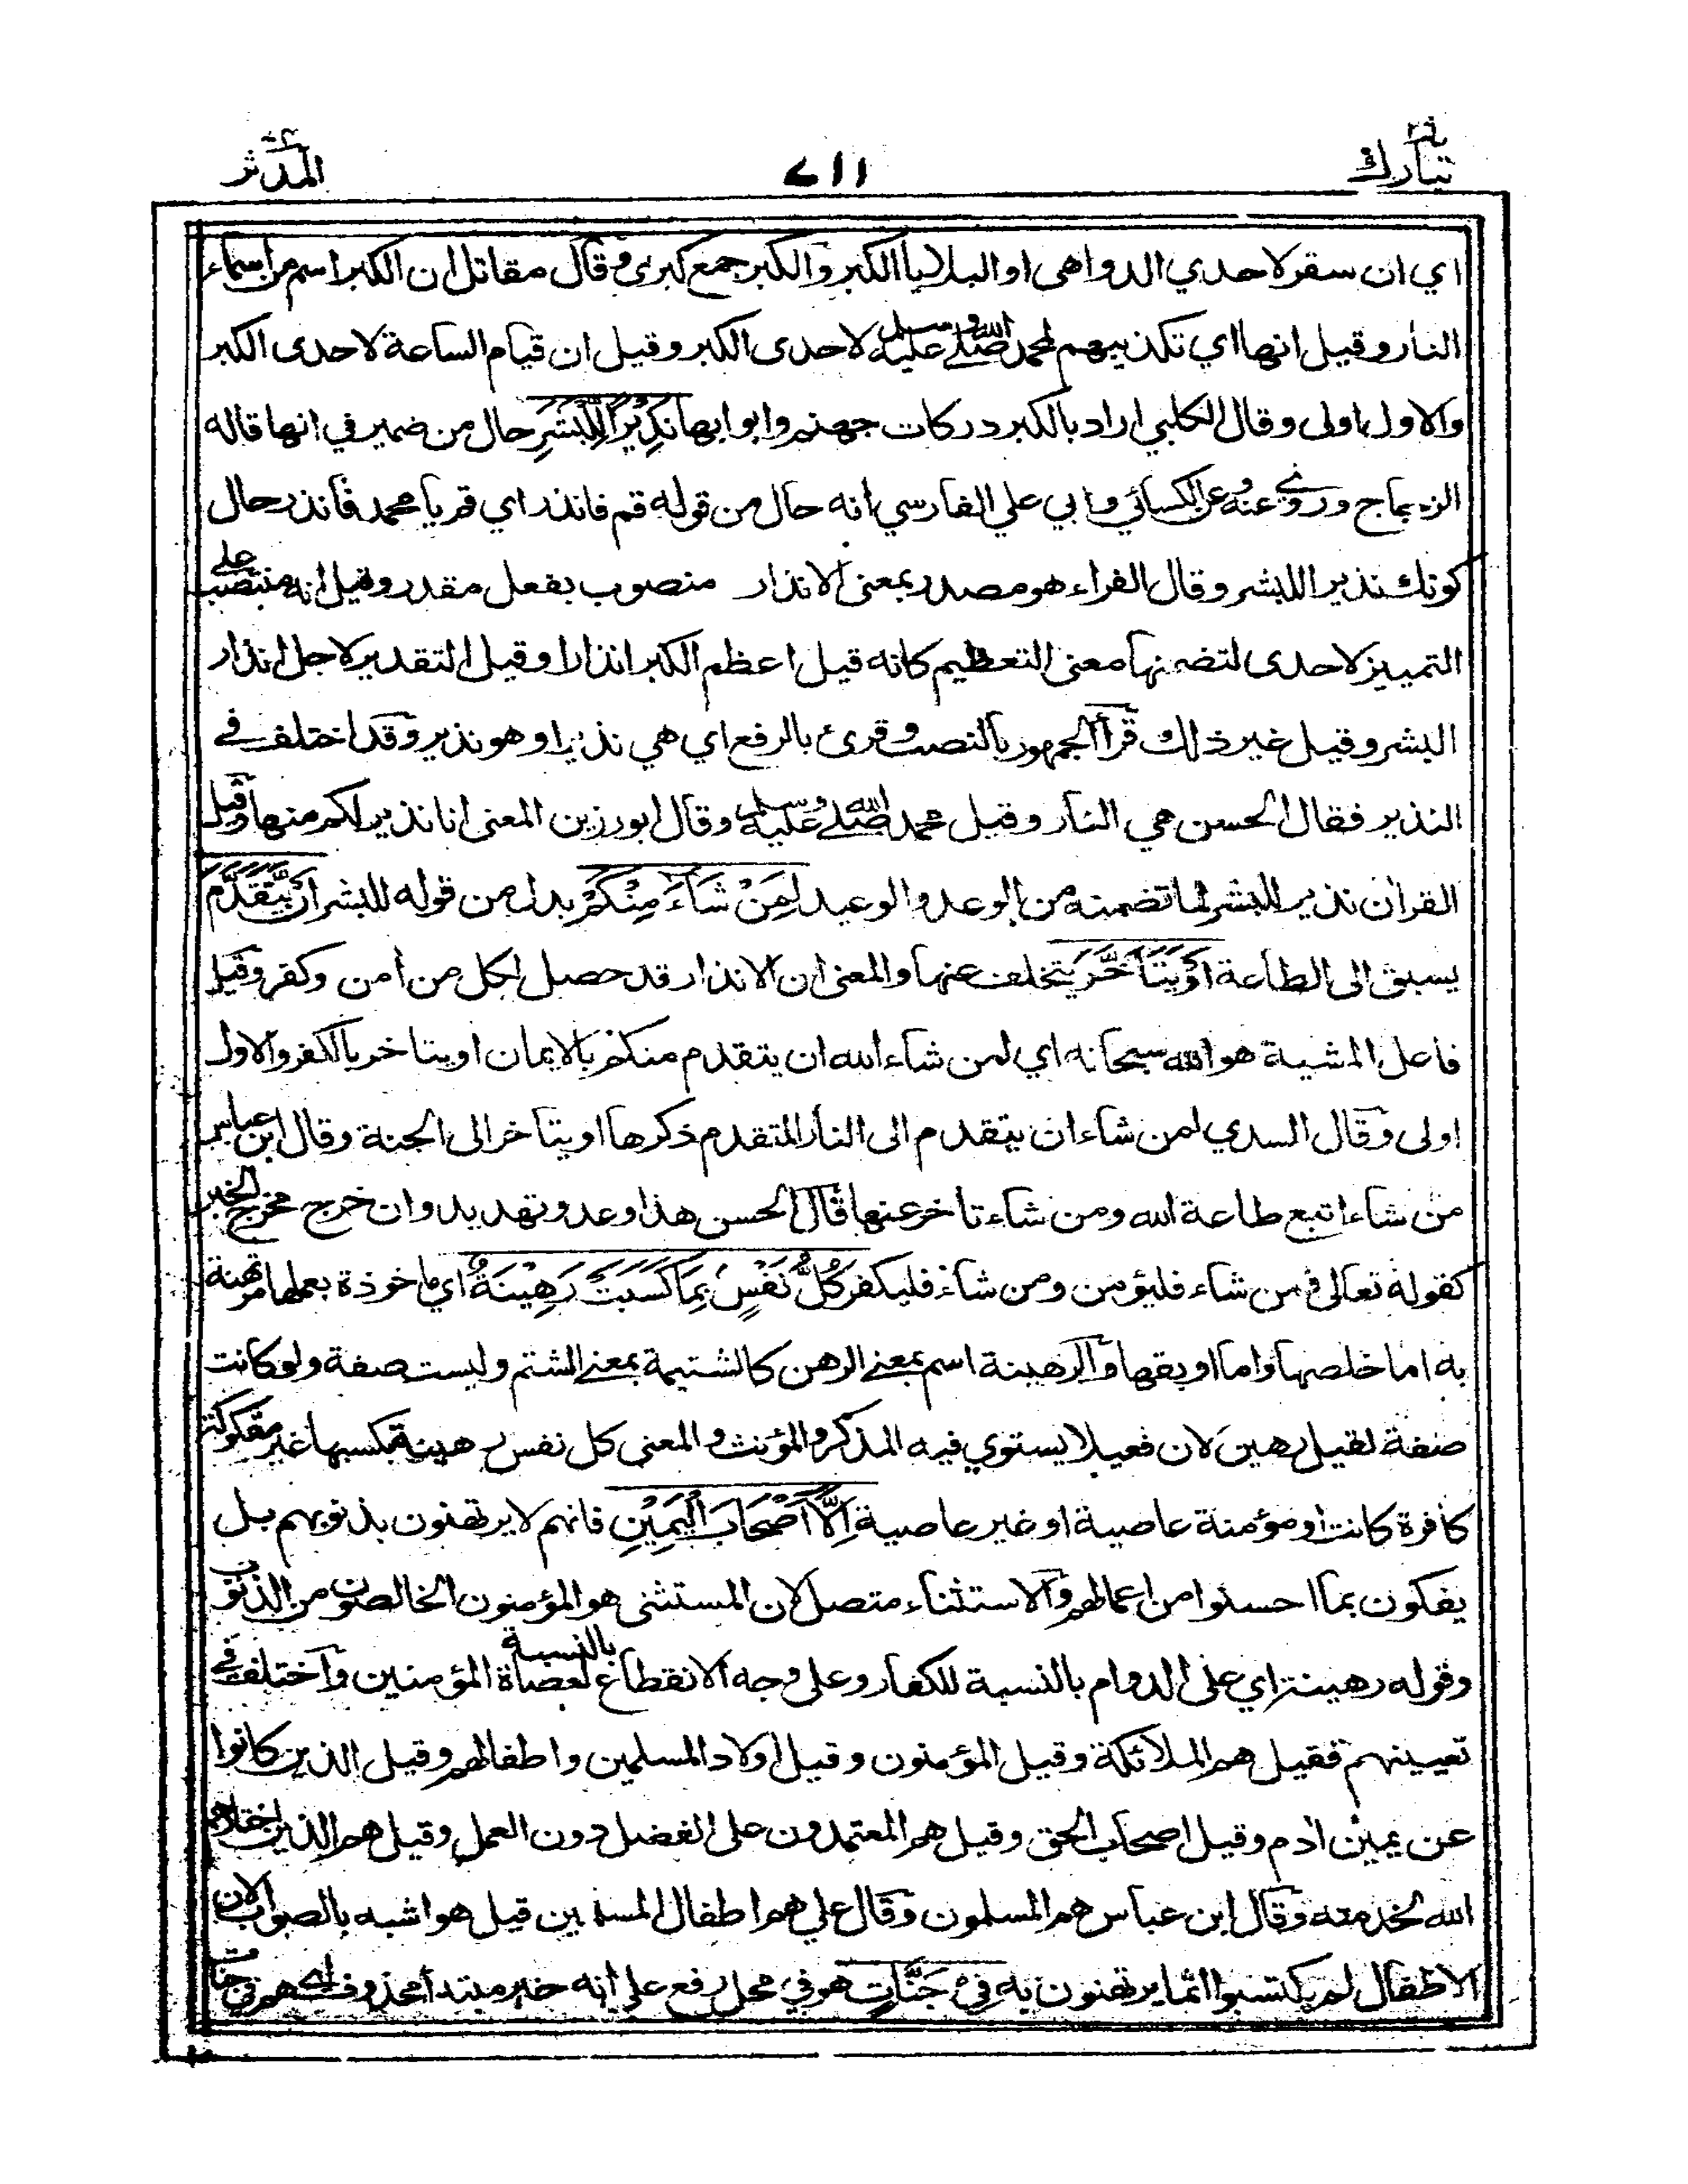 تبارك ٢٩
٢١١
المدثر ٧٤
اي ان سقر لاحدي الدواهى او البلايا الكبر والكبر جمع كبرى وقال مقاتل ان الكبر اسم من اسماء
النار وقيل انها اي تكذيبهم لمحمد صلى الله عليه وسلم لاحدى الكبر وقيل ان قيام الساعة لاحدى الكبر
والاول اولى وقال الكلبي اراد بالكبر دركات جهنم وابوابها نَذِيْرًا لِّلْبَشَرِ حال من ضمير في انها قاله
الزجاج وروي عنه وعن الكسائي وابي علي الفارسي انه حال من قوله قم فانذر اي قم يا محمد فانذر حال
كونك نذيرا للبشر وقال الفراء هو مصدر بمعنى الانذار منصوب بفعل مقدر وقيل انه منتصب على
التمييز لاحدى لتضمنها معنى التعظيم كانه قيل اعظم الكبر انذارا وقيل التقدير لاجل انذار
البشر وقيل غير ذلك قرأ الجمهور بالنصب وقرئ بالرفع اي هي نذير او هو نذير وقد اختلف في
النذير فقال الحسن هي النار وقيل محمد صلى الله عليه وسلم وقال ابو رزين المعنى انا نذير لكم منها وقيل
القران نذير للبشر لما تضمنه من الوعد والوعيد لِمَنْ شَاءَ مِنْكُمْ بدل من قوله للبشر اَنْ يَّتَقَدَّمَ
يسبق الى الطاعة اَوْ يَتَاَخَّرَ يتخلف عنها والمعنى ان الانذار قد حصل لكل من أمن وكفر وقيل
فاعل المشية هو الله سبحانه اي لمن شاء الله ان يتقدم منكم بالايمان او يتاخر بالكفر والاول
اولى وقال السدي لمن شاء ان يتقدم الى النار المتقدم ذكرها او يتاخر الى الجنة وقال ابن عباس
من شاء اتبع طاعة الله ومن شاء تاخر عنها قال الحسن هذا وعد وتهديد وان خرج مخرج الخبر
كقوله تعالى فمن شاء فليؤمن ومن شاء فليكفر كُلُّ نَفْسٍ بِمَا كَسَبَتْ رَهِيْنَةٌ اي ماخوذة بعملها مرتهنة
به اما خلصها واما اوبقها والرهينة اسم بمعنى الرهن كالشتيمة بمعنى الشتم وليست صفة ولو كانت
صفة لقيل رهين لان فعيلا يستوي فيه المذكر والمؤنث والمعنى كل نفس رهينة بكسبها غير مفكوكة
كافرة كانت او مؤمنة عاصية او غير عاصية اِلَّا اَصْحَابَ الْيَمِيْنِ فانهم لا يرتهنون بذنوبهم بل
يفكون بما احسنوا من اعمالهم والاستثناء متصل لان المستثنى هو المؤمنون الخالصون من الذنوب
وقوله رهينة اي على الدوام بالنسبة للكفار وعلى وجه الانقطاع بالنسبة لعصاة المؤمنين واختلف في
تعيينهم فقيل هم الملائكة وقيل المؤمنون وقيل اولاد المسلمين واطفالهم وقيل الذين كانوا
عن يمين ادم وقيل اصحاب الحق وقيل هم المعتمدون على الفضل دون العمل وقيل هم الذين اختارهم
الله لخدمته وقال ابن عباس هم المسلمون وقال علي هم اطفال المسلمين قيل هو اشبه بالصواب لان
الاطفال لم يكتسبوا اثما يرتهنون به فِيْ جَنَّاتٍ هو في محل رفع على انه خبر مبتدأ محذوف اي هم في جنات